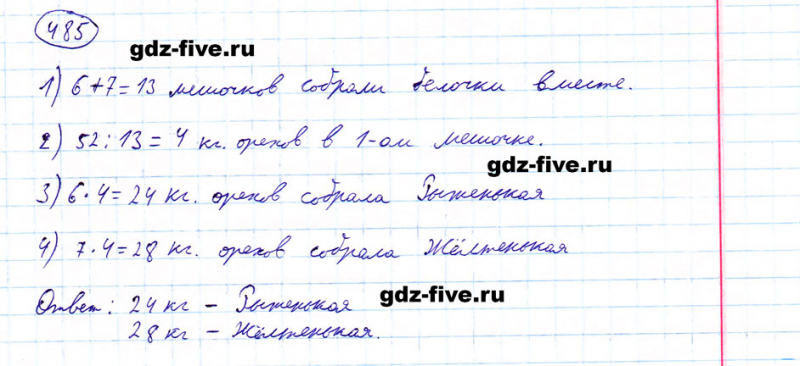 485
gdz-five.ru
1) 6+7=13 мешочков собрали белочки вместе.
2) 52:13=4 кг. орехов в 1-ом мешочке.
gdz-five.ru
3) 6·4=24 кг. орехов собрала Рыженькая
4) 7·4=28 кг. орехов собрала Жёлтенькая
Ответ: 24 кг – Рыженькая
gdz-five.ru
28 кг – Жёлтенькая.